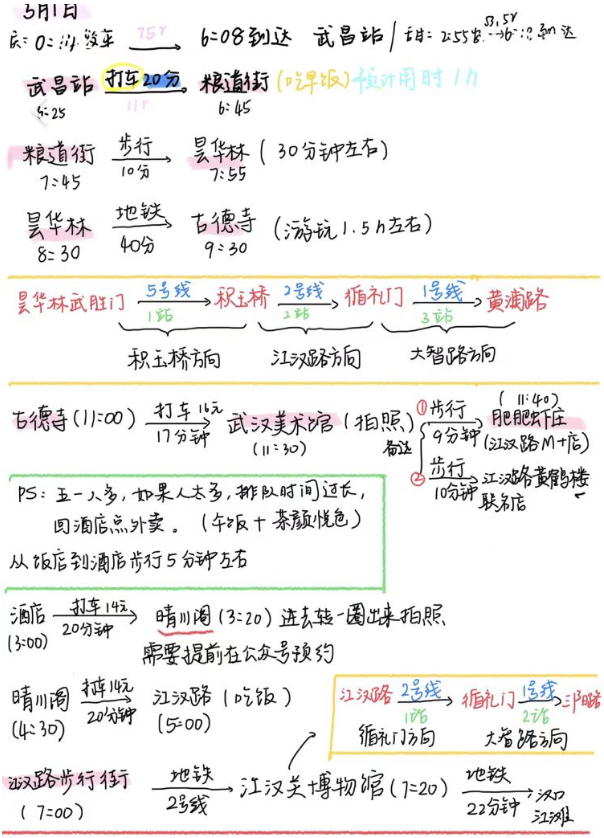 3月1日
75r 6:08到达 武昌站 / 甜: 2:55 53.5r 到达
武昌站 打车20分 粮道街 (吃早饭) 预计用时1h
11r
5:25 6:45
粮道街 步行 昙华林 (30分钟左右)
7:45 10分 7:55
昙华林 地铁 古德寺 (游玩1.5h左右)
8:30 40分 9:30
昙华林武胜门 5号线 积玉桥 2号线 循礼门 1号线 黄浦路
1站 2站 3站
积玉桥方向 江汉路方向 大智路方向
古德寺(11:00) 打车16元 武汉美术馆 (拍照)
17分钟 (11:30) 备选
①步行 肥肥虾庄 (11:40)
9分钟 (江汉路M+店)
②步行 江汉路黄鹤楼
10分钟 联名店
PS: 五一人多,如果人太多,排队时间过长,
回酒店点外卖。(午饭+茶颜悦色)
从饭店到酒店步行5分钟左右
酒店 打车14元 晴川阁(3:20) 进去转一圈出来拍照
(3:00) 20分钟
需要提前在公众号预约
晴川阁 打车14元 江汉路 (吃饭)
(4:30) 20分钟 (5:00)
江汉路 2号线 循礼门 1号线 三阳路
1站 2站
循礼门方向 大智路方向
江汉路步行街 地铁 江汉关博物馆(7:20) 地铁 汉口
(7:00) 2号线 22分钟 江滩